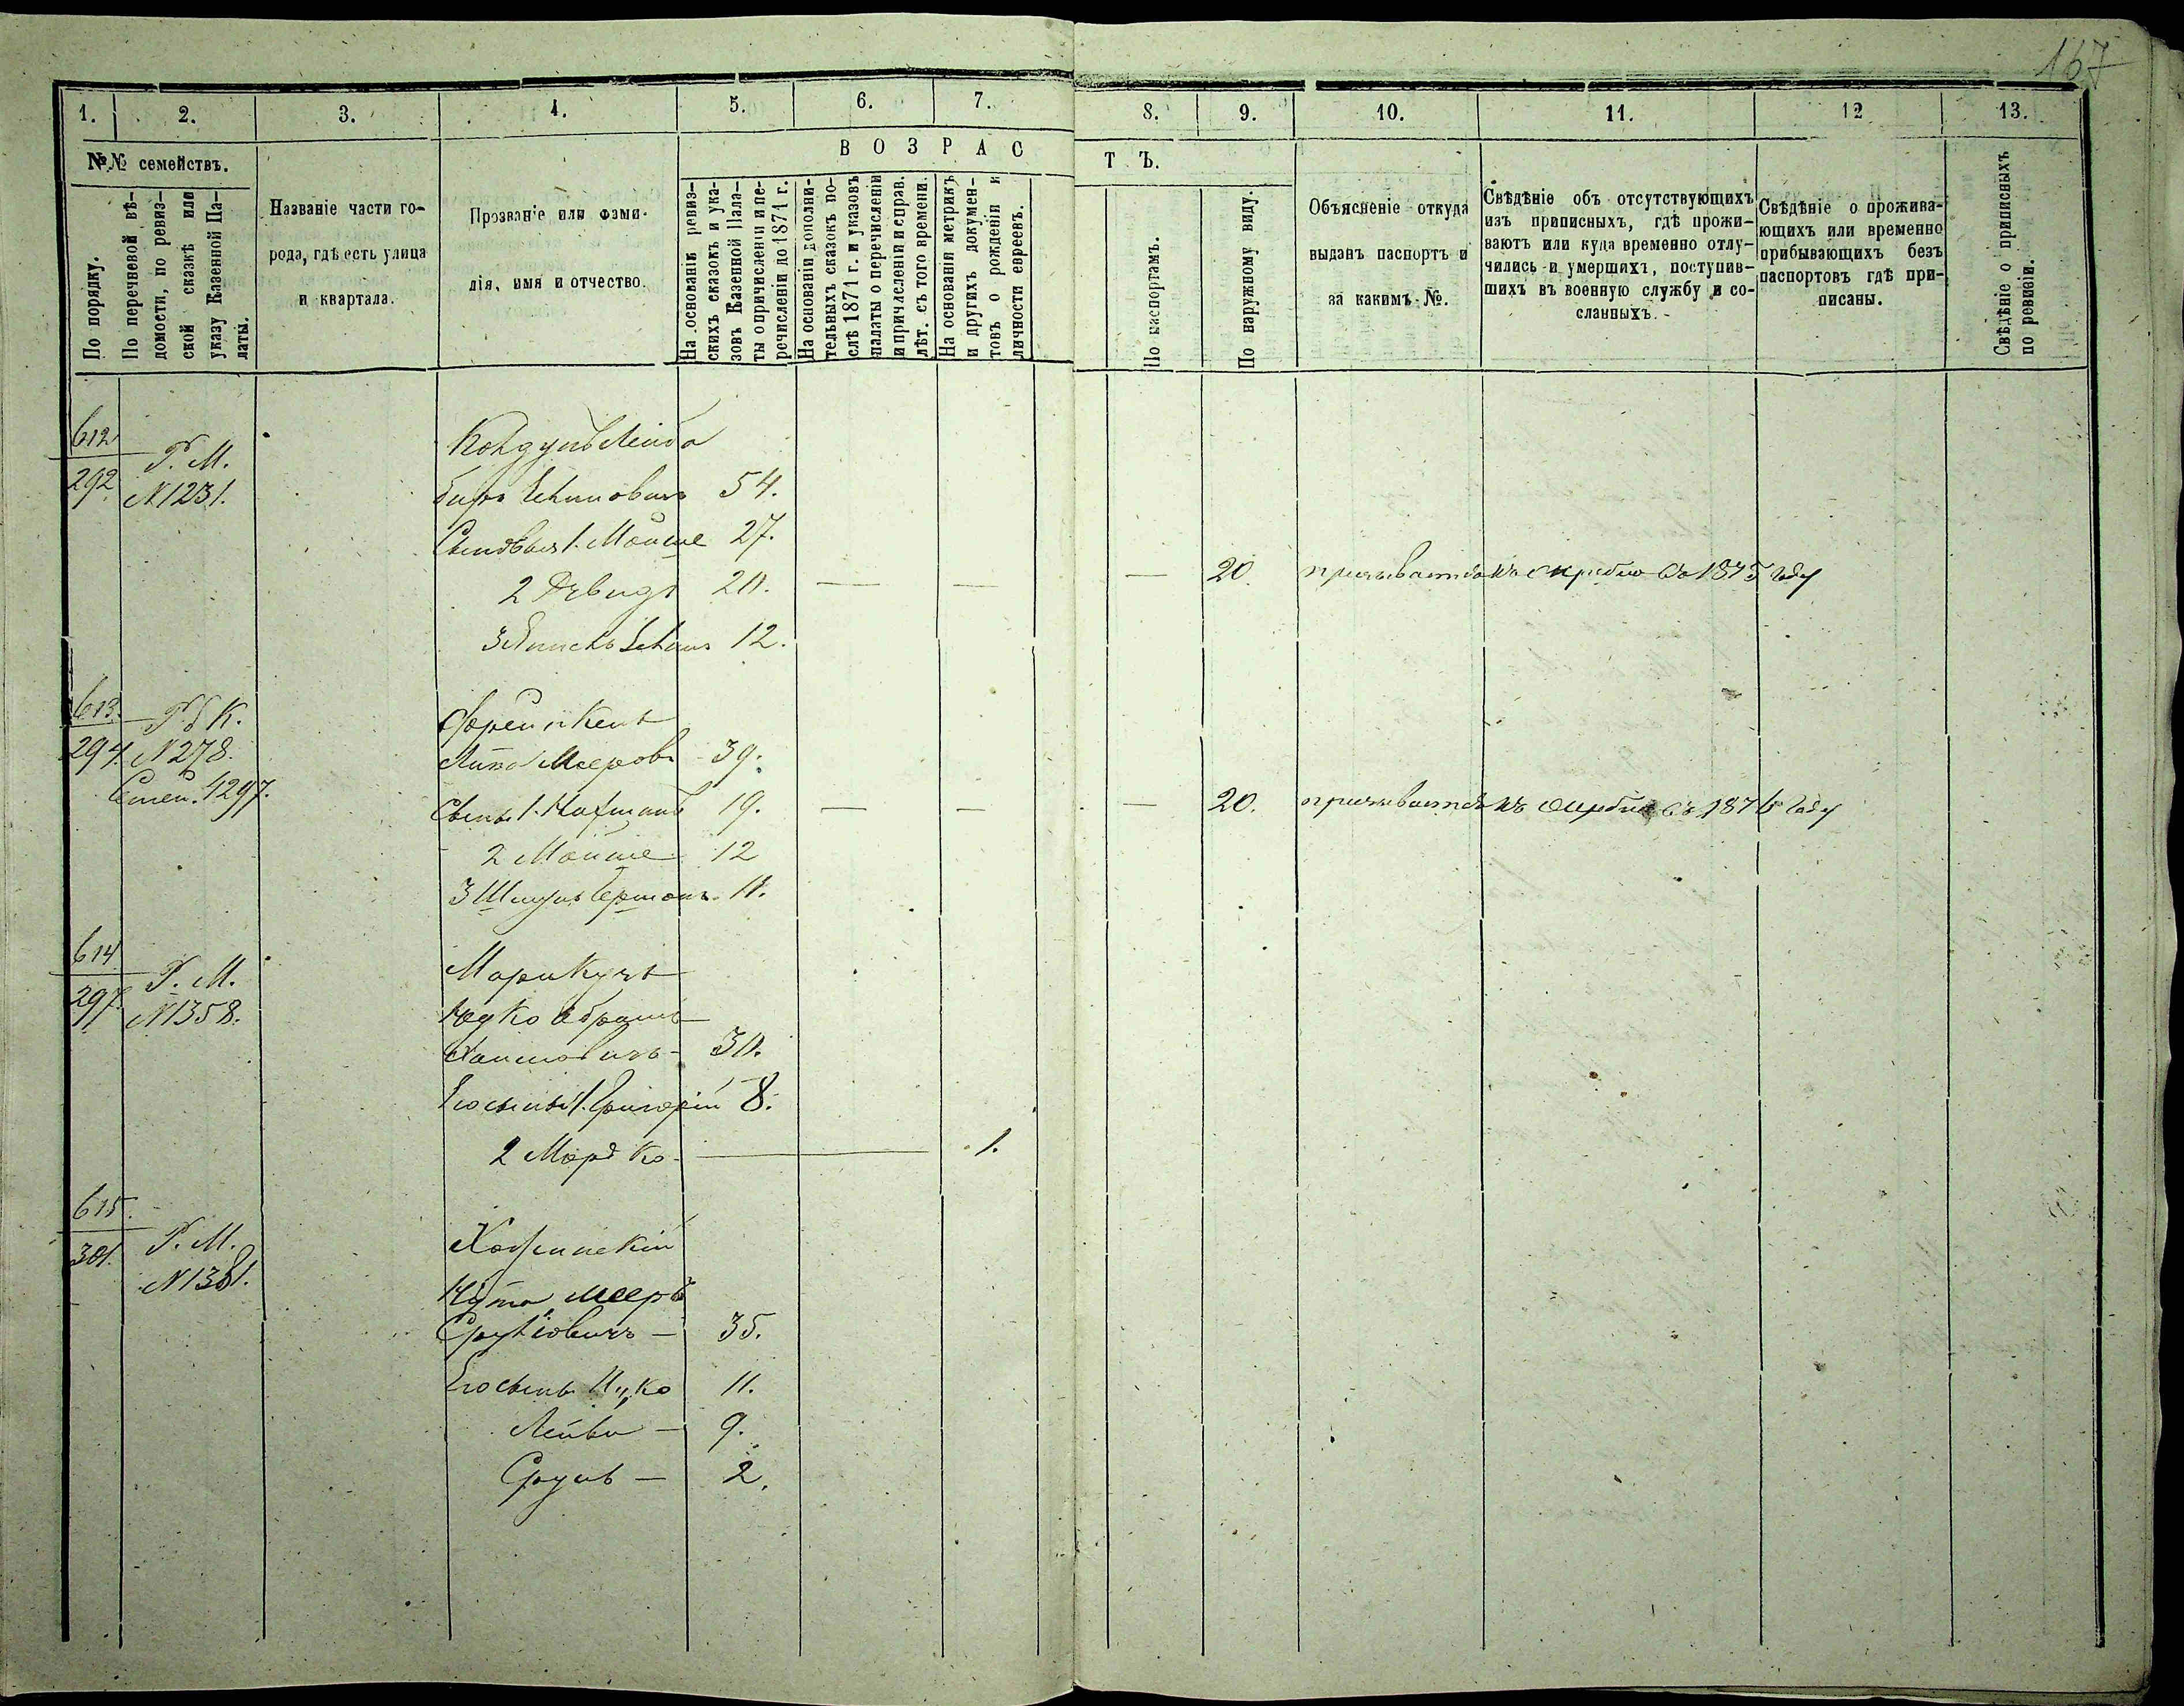 167
1. 2. 3. 4. 5. 6. 7. 8. 9. 10. 11. 12 13.
№№ семействъ.
По порядку.
По перечневой вѣ-
домости, по ревиз-
ской сказкѣ или
указу Казенной Па-
латы.
Названіе части го-
рода, гдѣ есть улица
и квартала.
Прозваніе или фами-
лія, имя и отчество.
ВОЗРАСТЪ.
На основаніи ревиз-
скихъ сказокъ и ука-
зовъ Казенной Пала-
ты о причисленіи и пе-
речисленіи до 1871 г.
На основаніи дополни-
тельныхъ сказокъ по-
слѣ 1871 г. и указовъ
палаты о перечисленіи
и причисленіи и справ.
лѣт. съ того времени.
На основаніи метрикъ
и другихъ докумен-
товъ о рожденіи и
личности евреевъ.
По паспортамъ.
По наружному виду.
Объясненіе откуда
выданъ паспортъ и
за какимъ №.
Свѣдѣніе объ отсутствующихъ
изъ приписныхъ, гдѣ прожи-
ваютъ или куда временно отлу-
чились и умершихъ, поступив-
шихъ въ военную службу и со-
сланныхъ.
Свѣдѣніе о прожива-
ющихъ или временно
прибывающихъ безъ
паспортовъ гдѣ при-
писаны.
Свѣдѣніе о приписныхъ
по ревизіи.
612
292
Р. М.
№1231.
Лейба
54.
Сыновья 1. Мойше 27.
2 Давидъ 20. — — — 20. призывается къ жребію въ 1875 году
3 12.
613.
294.
Р. К.
№278.
Семен. 1297.
Мееровъ 39.
Сынъ 1. 19. — — — 20. призывается къ жребію въ 1876 году
2 Мойше 12
3 11.
614
297.
Р. М.
№1358.
Юдко Абрамъ
Хаимовичъ 30.
Его сыны 1. Григорій 8.
2 Мордко — 1.
615.
301.
Р. М.
№1381.
Нута Мееръ
Срулiовичъ — 35.
Его сынъ Ицко 11.
Лейви — 9.
Срулъ — 2.